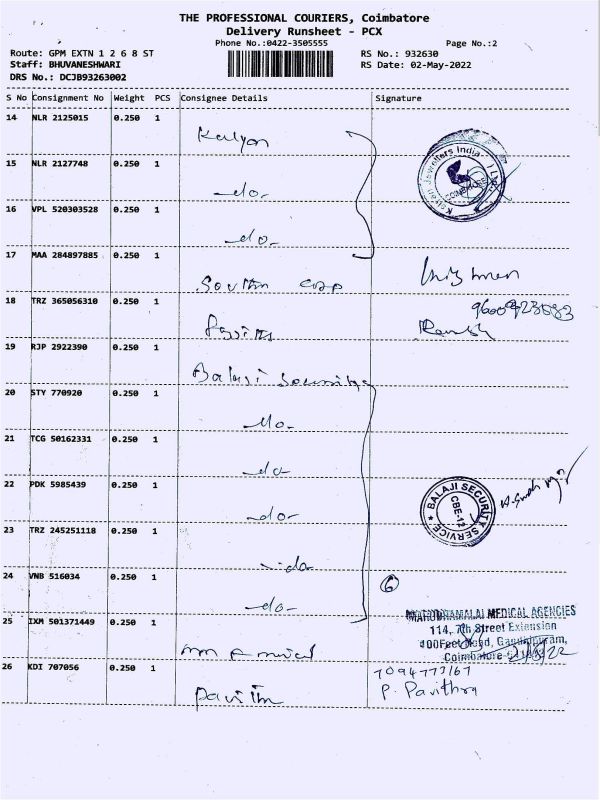 THE PROFESSIONAL COURIERS, Coimbatore
Delivery Runsheet - PCX
Phone No.:0422-3505555
Page No.:2
Route: GPM EXTN 1 2 6 8 ST
RS No.: 932630
Staff: BHUVANESHWARI
RS Date: 02-May-2022
DRS No.: DCJB93263002
S No Consignment No Weight PCS Consignee Details Signature
14 NLR 2125015 0.250 1
Kalyan
15 NLR 2127748 0.250 1
-do-
16 VPL 520303528 0.250 1
-do-
Kalyan Jewellers India
COIMBATORE
17 MAA 284897885 0.250 1
South
18 TRZ 365056310 0.250 1
19 RJP 2922390 0.250 1
Balaji
20 STY 770920 0.250 1
-do-
21 TCG 50162331 0.250 1
-do-
22 PDK 5985439 0.250 1
-do-
★ BALAJI SECURITY SERVICE
CBE-12
23 TRZ 245251118 0.250 1
-do-
24 VNB 516034 0.250 1
-do-
6
25 IXM 501371449 0.250 1
MEDICAL AGENCIES
114, 7th Street Extension
100Feet Road, Gandhipuram,
Coimbatore
26 KDI 707056 0.250 1
Pavith
7094773167
P. Pavithra